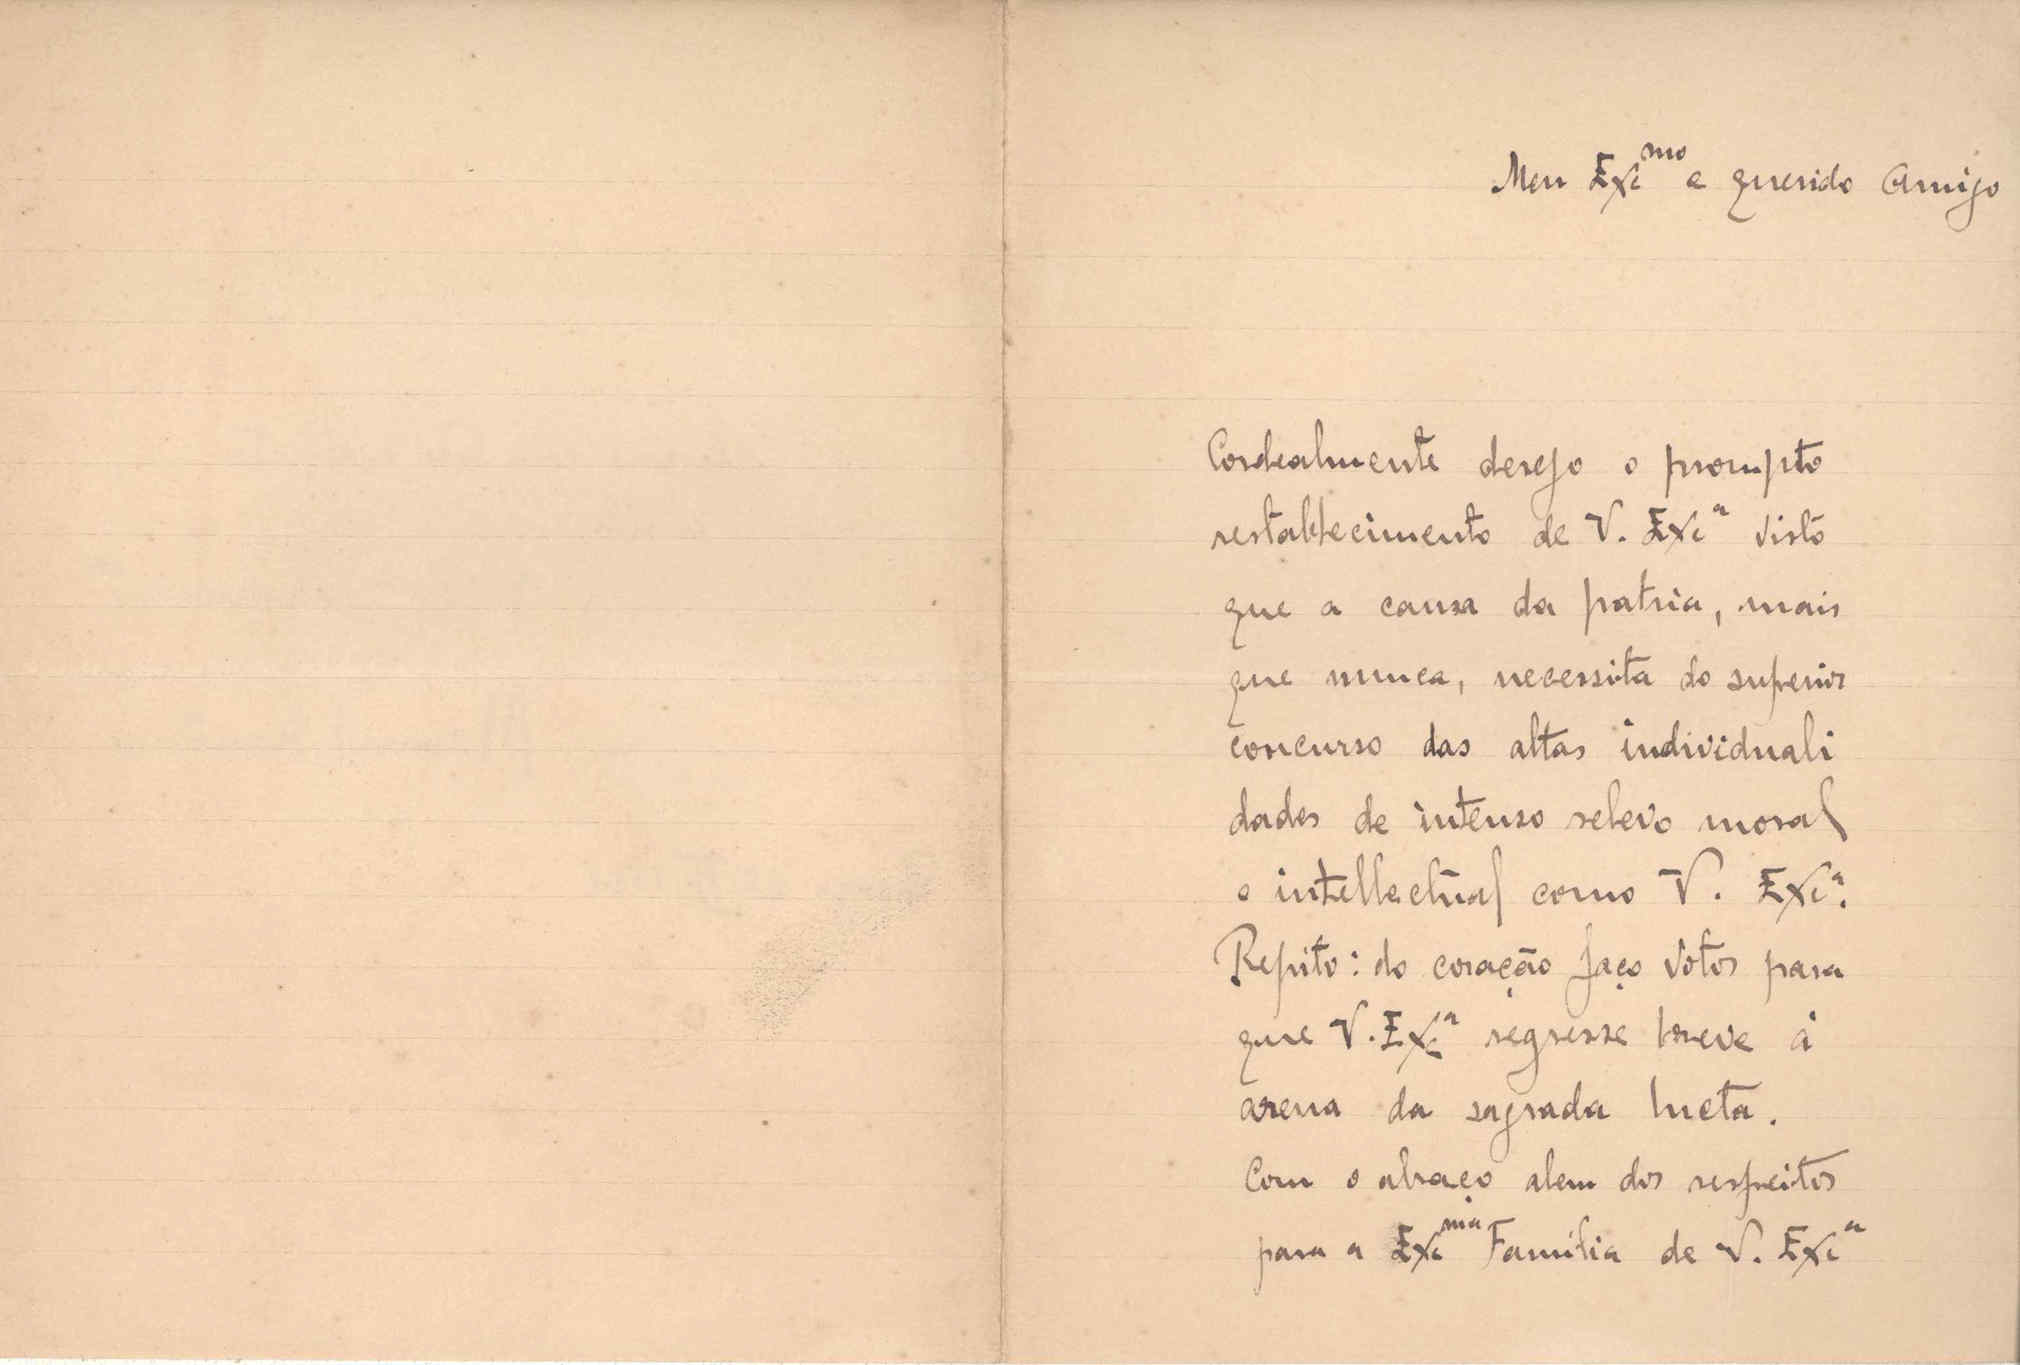 Meu Exc^mo e querido Amigo
Cordealmente desejo o prompto
restablecimento de V. Exc^a visto
que a causa da patria, mais
que nunca, necessita do superior
concurso das altas individuali
dades de intenso relevo moral
e intellectual como V. Exc^a.
Repito: do coração faço votos para
que V. Exc^a regresse breve á
arena da sagrada lucta.
Com o abraço alem dos respeitos
para a Exc^ma Familia de V. Exc^a